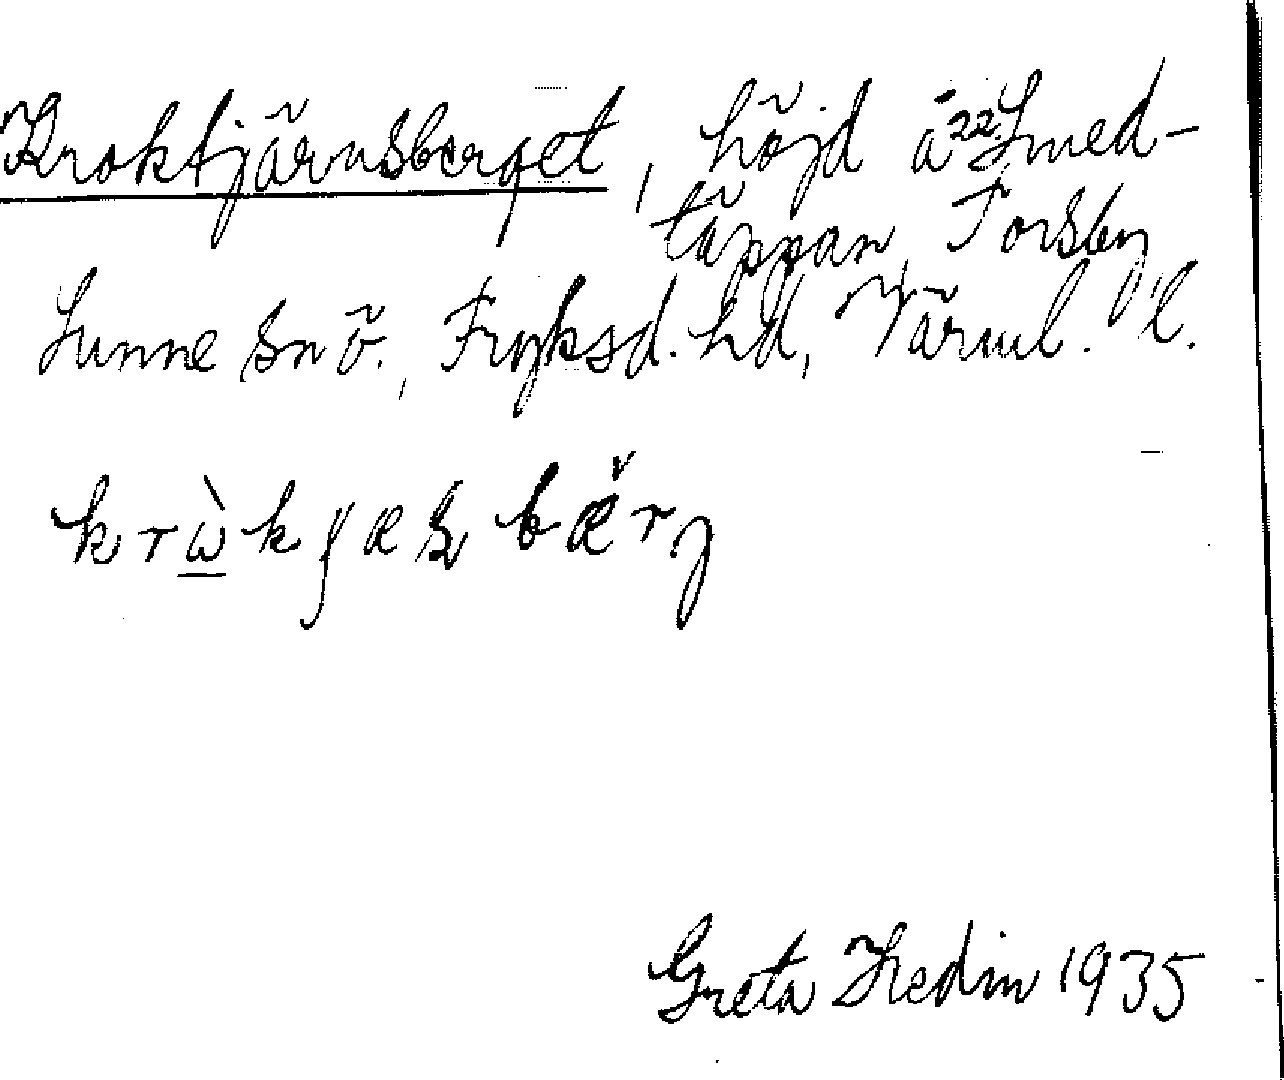 Kroktjärnsberget, höjd å 22 Smed-
täppan, Forsby
Sunne sn ö., Fryksd. hd, Värml. l.
Greta Hedin 1935